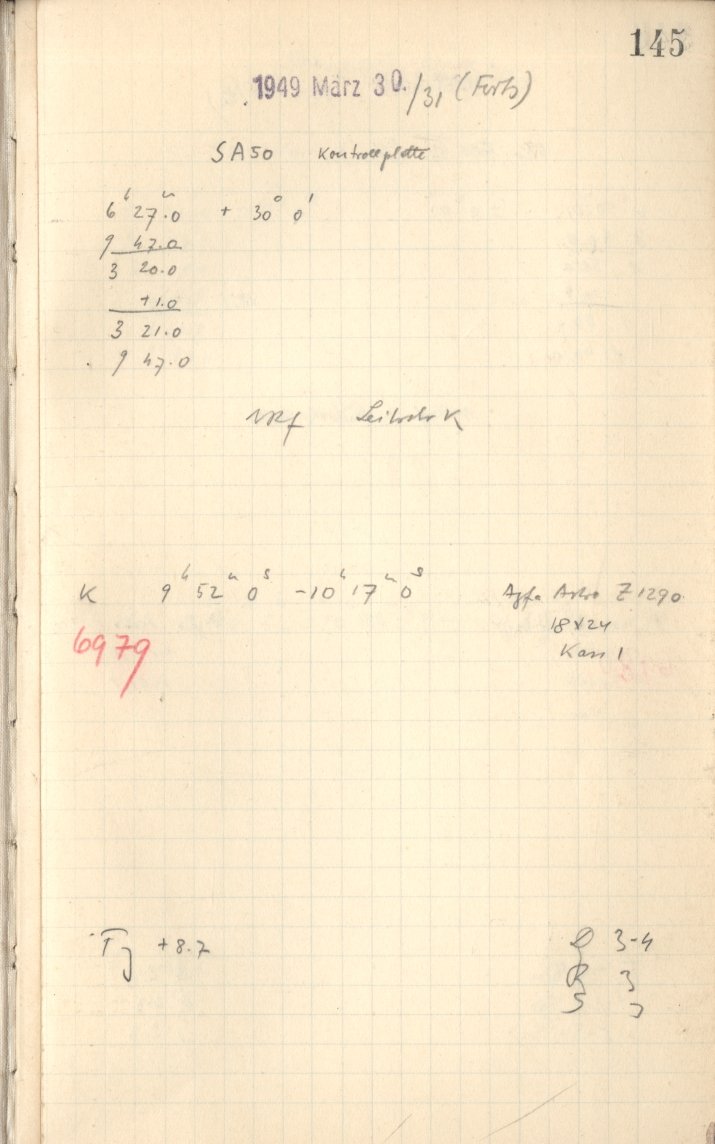 145
1949 März 30./31 (Forts)
SA50 Kontrollplatte
6ʰ 27ᵐ.0 + 30° 0'
9 47.0
3 20.0
+1.0
3 21.0
9 47.0
K
K 9ʰ 52ᵐ 0ˢ -10ʰ 17ᵐ 0ˢ Agfa Astro Z 1290
6979 18x24
Kass 1
+8.7 3-4
R 3
S 3